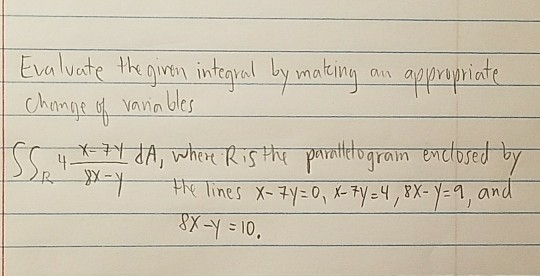 Evaluate the given integral by making an appropriate
change of variables
∫∫R 4 (x-7y)/(8x-y) dA, where R is the parallelogram enclosed by
the lines x-7y=0, x-7y=4, 8x-y=9, and
8x-y=10.